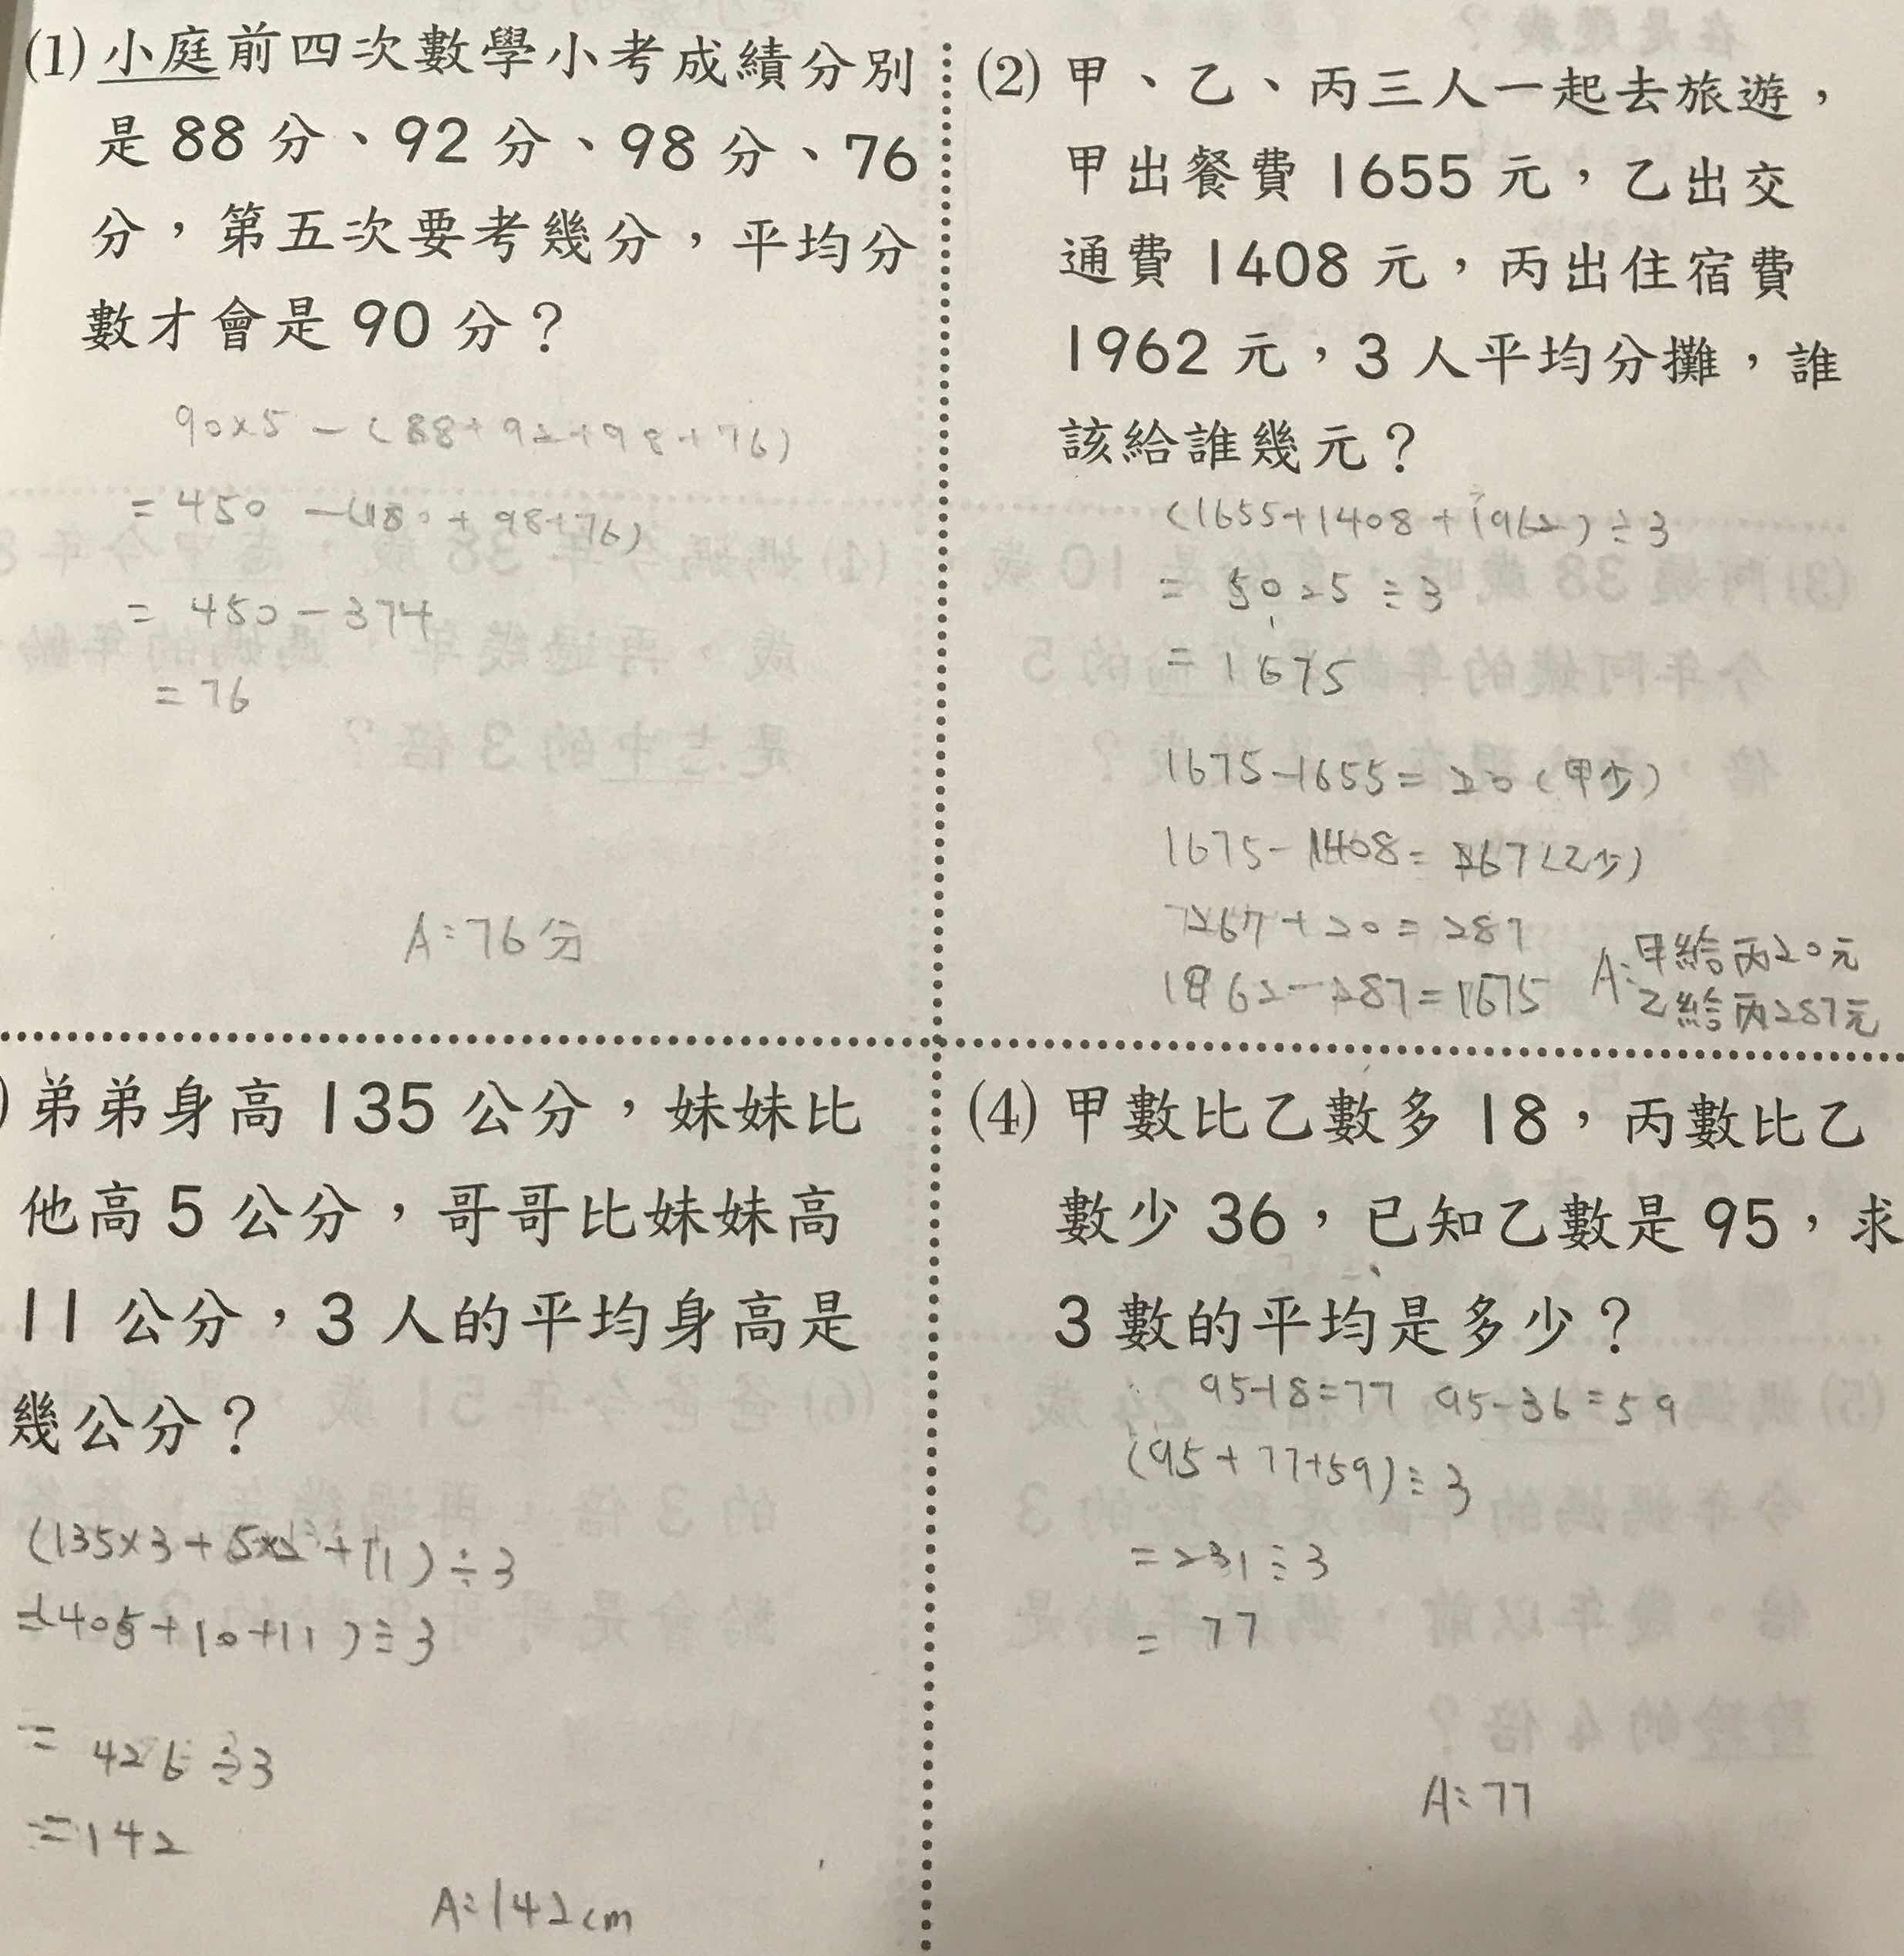 (1) 小庭前四次數學小考成績分別
是 88 分、92 分、98 分、76
分，第五次要考幾分，平均分
數才會是 90 分？
90×5－(88+92+98+76)
= 450 －(180 + 98+76)
= 450 － 374
= 76
A：76分
(2) 甲、乙、丙三人一起去旅遊，
甲出餐費 1655 元，乙出交
通費 1408 元，丙出住宿費
1962 元，3 人平均分攤，誰
該給誰幾元？
(1655+1408+1962)÷3
= 5025 ÷3
= 1675
1675-1655= 20(甲少)
1675-1408= 267(乙少)
267+20=287
1962-287=1675
A：甲給丙20元
乙給丙287元
) 弟弟身高 135 公分，妹妹比
他高 5 公分，哥哥比妹妹高
11 公分，3 人的平均身高是
幾公分？
(135×3+5×2+11)÷3
=(405+10+11)÷3
= 426÷3
=142
A：142cm
(4) 甲數比乙數多 18，丙數比乙
數少 36，已知乙數是 95，求
3 數的平均是多少？
95-18=77 95-36=59
(95+77+59)÷3
=231÷3
= 77
A：77